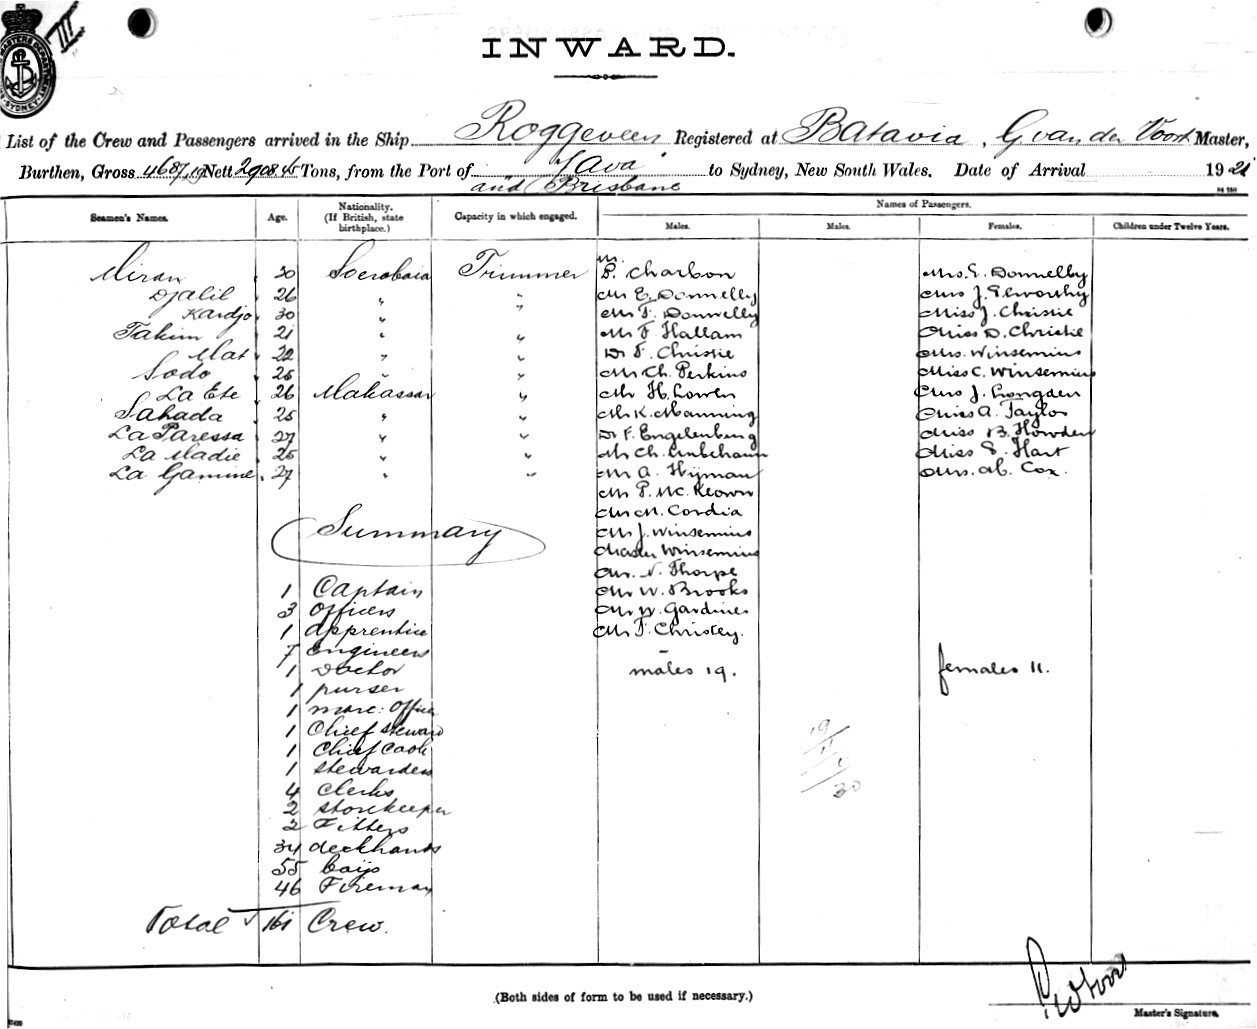 III
INWARD.
List of the Crew and Passengers arrived in the Ship Roggeveen Registered at Batavia, G van der Voort Master,
Burthen, Gross 4687.19 Nett 2908.45 Tons, from the Port of Java to Sydney, New South Wales. Date of Arrival 192
and Brisbane
Seamen's Names. Age. Nationality. (If British, state birthplace.) Capacity in which engaged. Names of Passengers.
Males. Males. Females. Children under Twelve Years.
Miran 30 Soerabaia Trimmer M. P. Charbon Mrs. E. Donnelly
Djalil 26 " " Mr E. Donnelly Mrs J. Elworthy
Kardjo 30 " " Mr F. Donnelly Miss J. Christie
Takim 21 " " Mr F Hallam Miss D. Christie
Mat 22 " " Dr F. Christie Mrs. Winsemius
Sodo 25 " " Mr Ch. Perkins Miss C. Winsemius
La Ete 26 Makassar " Mr H. Lowen Mrs J. Longden
Sahada 25 " " Mr K. Manning Miss A. Taylor
La Paressa 27 " " Dr F. Engelenburg Miss B. Howden
La Madie 25 " " Mr Ch. Miss E. Hart
La Gamine 27 " " Mr A. Hyman Mrs. M. Cox.
Mr P. Mc. Keown
Mr M. Cordia
Summary Mr J. Winsemius
Master Winsemius
Mr. N. Thorpe
1 Captain Mr W. Brooks
3 Officers Mr W. Gardiner
1 apprentice Mr F. Christey.
7 Engineers
1 Doctor males 19. females 11.
1 purser
1 marc: Officer
1 Chief Steward 19
1 Chief Cook 11
1 Stewardess
4 Clerks 30
2 storekeeper
2 Fitters
34 deckhands
55 boys
46 Fireman
Total 161 Crew.
(Both sides of form to be used if necessary.)
Master's Signature.